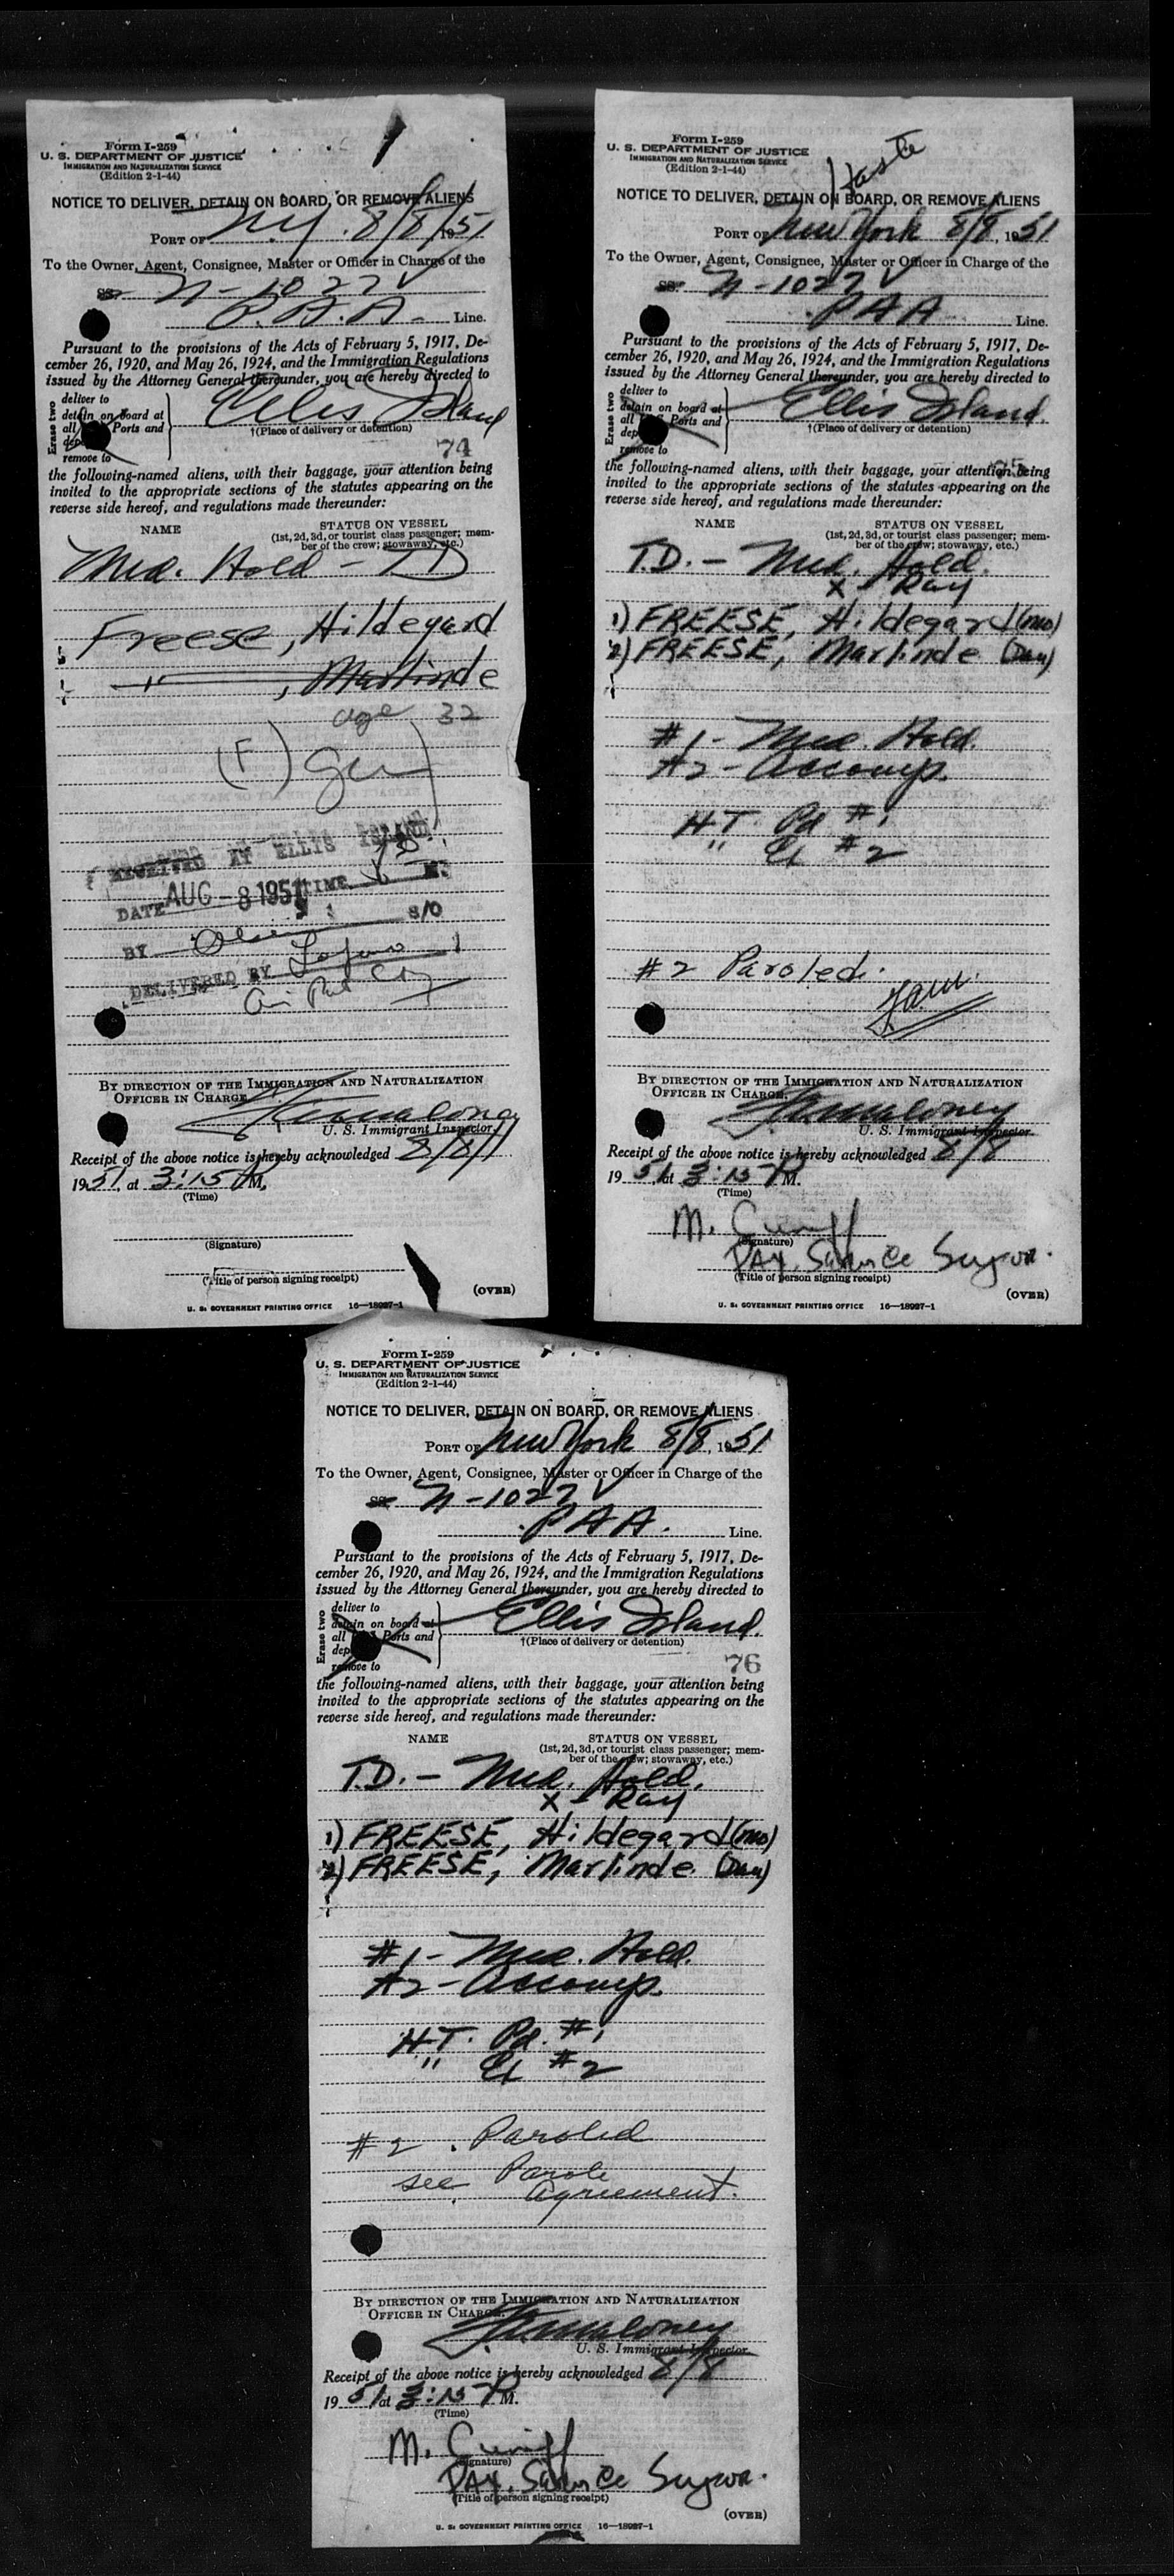 Form I-259
U. S. DEPARTMENT OF JUSTICE
IMMIGRATION AND NATURALIZATION SERVICE
(Edition 2-1-44)
NOTICE TO DELIVER, DETAIN ON BOARD, OR REMOVE ALIENS
PORT OF N.Y. 8/8/, 1951
To the Owner, Agent, Consignee, Master or Officer in Charge of the
SS. N-1027 V
P.A.A. Line.
Pursuant to the provisions of the Acts of February 5, 1917, De-
cember 26, 1920, and May 26, 1924, and the Immigration Regulations
issued by the Attorney General thereunder, you are hereby directed to
Erase two
deliver to
detain on board at
all Ports and
dep
remove to
Ellis Island
†(Place of delivery or detention)
74
the following-named aliens, with their baggage, your attention being
invited to the appropriate sections of the statutes appearing on the
reverse side hereof, and regulations made thereunder:
NAME STATUS ON VESSEL
(1st, 2d, 3d, or tourist class passenger; mem-
ber of the crew; stowaway, etc.)
Med. Hold - TD
Freese, Hildegard
" , Marlinde
age 32
(F) Ger
RECEIVED AT ELLIS ISLAND
DATE AUG - 8 1951 TIME M.
BY Olsen S/O
DELIVERED BY
BY DIRECTION OF THE IMMIGRATION AND NATURALIZATION
OFFICER IN CHARGE.
Maloney
U. S. Immigrant Inspector
Receipt of the above notice is hereby acknowledged 8/8/
1951, at 3:15 PM.
(Time)
(Signature)
(Title of person signing receipt)
(OVER)
U. S. GOVERNMENT PRINTING OFFICE 16—18927-1
Form I-259
U. S. DEPARTMENT OF JUSTICE
IMMIGRATION AND NATURALIZATION SERVICE
(Edition 2-1-44)
Haste
NOTICE TO DELIVER, DETAIN ON BOARD, OR REMOVE ALIENS
PORT OF New York 8/8, 1951
To the Owner, Agent, Consignee, Master or Officer in Charge of the
SS. N-1027 V
PAA Line.
Pursuant to the provisions of the Acts of February 5, 1917, De-
cember 26, 1920, and May 26, 1924, and the Immigration Regulations
issued by the Attorney General thereunder, you are hereby directed to
Erase two
deliver to
detain on board at
all Ports and
dep
remove to
Ellis Island.
†(Place of delivery or detention)
the following-named aliens, with their baggage, your attention being
invited to the appropriate sections of the statutes appearing on the
reverse side hereof, and regulations made thereunder:
NAME STATUS ON VESSEL
(1st, 2d, 3d, or tourist class passenger; mem-
ber of the crew; stowaway, etc.)
T.D. - Med. Hold.
X-Ray
1) FREESE, Hildegard (mo)
2) FREESE, Marlinde (Dau)
#1 - Med. Hold.
#2 - Accomp.
HT. Pd #1
" #2
#2 Paroled.
BY DIRECTION OF THE IMMIGRATION AND NATURALIZATION
OFFICER IN CHARGE.
Maloney
U. S. Immigrant Inspector
Receipt of the above notice is hereby acknowledged 8/8
1951, at 3:15 PM.
(Time)
M.
(Signature)
PAX. Service
(Title of person signing receipt)
(OVER)
U. S. GOVERNMENT PRINTING OFFICE 16—18927-1
Form I-259
U. S. DEPARTMENT OF JUSTICE
IMMIGRATION AND NATURALIZATION SERVICE
(Edition 2-1-44)
NOTICE TO DELIVER, DETAIN ON BOARD, OR REMOVE ALIENS
PORT OF New York 8/8, 1951
To the Owner, Agent, Consignee, Master or Officer in Charge of the
SS. N-1027 V
PAA. Line.
Pursuant to the provisions of the Acts of February 5, 1917, De-
cember 26, 1920, and May 26, 1924, and the Immigration Regulations
issued by the Attorney General thereunder, you are hereby directed to
Erase two
deliver to
detain on board at
all Ports and
dep
remove to
Ellis Island.
†(Place of delivery or detention)
76
the following-named aliens, with their baggage, your attention being
invited to the appropriate sections of the statutes appearing on the
reverse side hereof, and regulations made thereunder:
NAME STATUS ON VESSEL
(1st, 2d, 3d, or tourist class passenger; mem-
ber of the crew; stowaway, etc.)
T.D. - Med. Hold.
X-Ray
1) FREESE, Hildegard (mo)
2) FREESE, Marlinde (Dau)
#1 - Med. Hold.
#2 - Accomp.
HT. Pd. #1
" #2
#2. Paroled
see Parole
Agreement.
BY DIRECTION OF THE IMMIGRATION AND NATURALIZATION
OFFICER IN CHARGE.
Maloney
U. S. Immigrant Inspector
Receipt of the above notice is hereby acknowledged 8/8
1951, at 3:15 PM.
(Time)
M.
(Signature)
PAX. Service
(Title of person signing receipt)
(OVER)
U. S. GOVERNMENT PRINTING OFFICE 16—18927-1